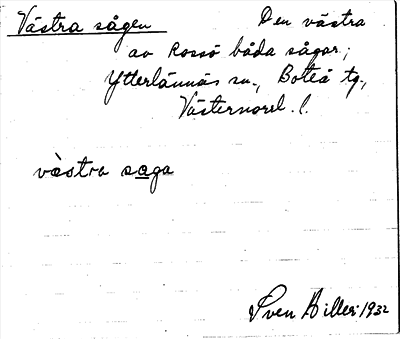 Västra sågen Den västra
av Rossö båda sågar;
Ytterlännäs sn., Boteå tg.,
Västernorrl. l.
västra saga
Sven Hillert 1932